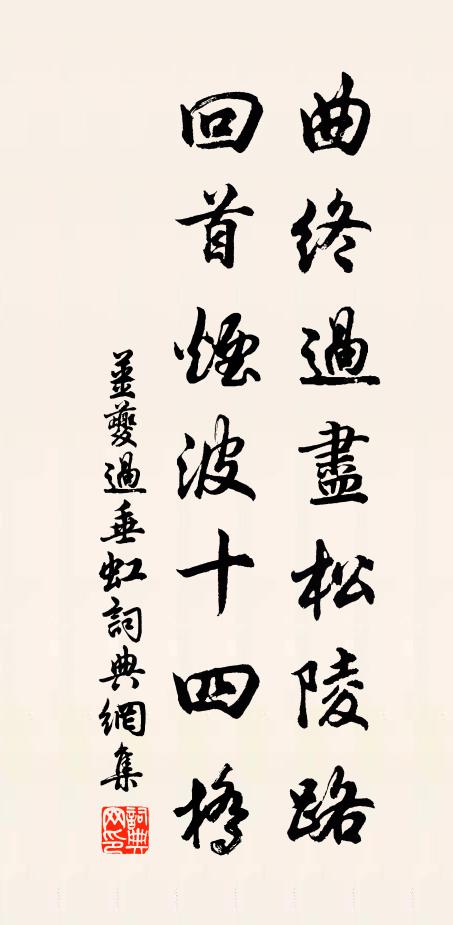 曲終過盡松陵路
回首煙波十四橋
姜夔過垂虹詞典網集
詞典網印